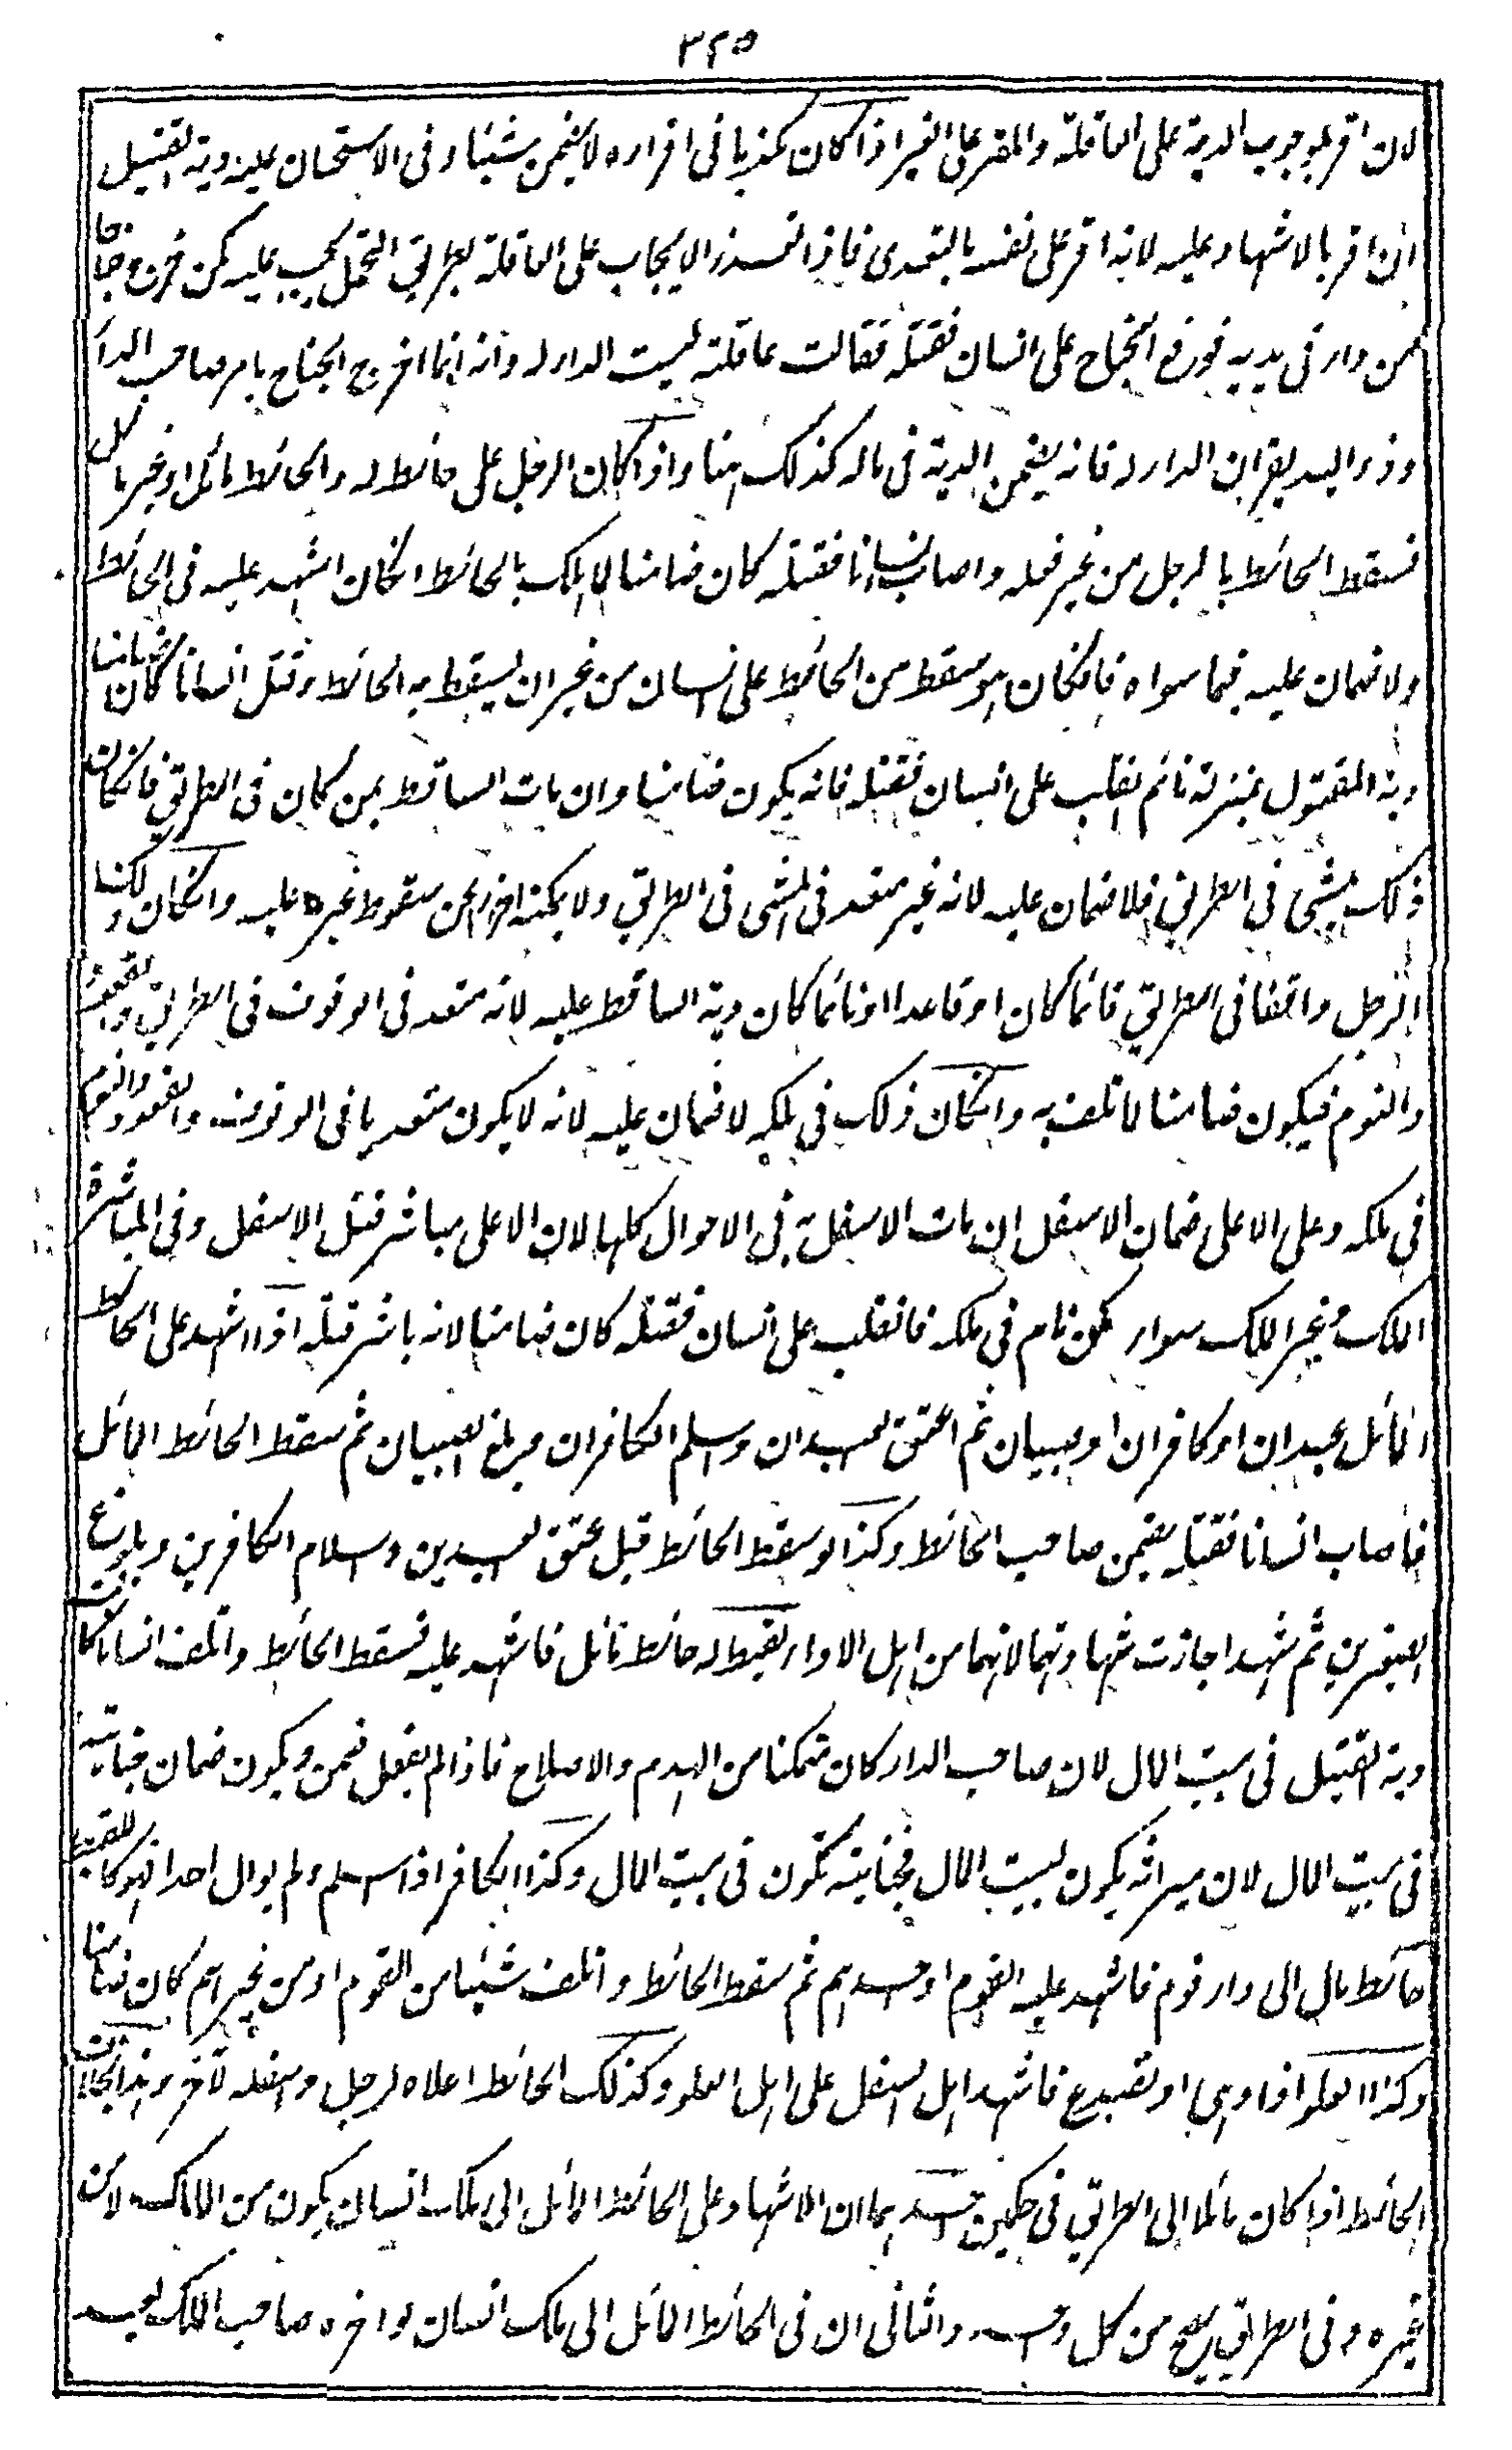 ٣٢٥
لان اقر بوجوب الدية على العاقلة والمقر على الغير اذا كان مكذبا فى اقراره لا يضمن شيئا وفى الاستحسان عليه دية القتيل
ان اقر بالاشهاد عليه لانه اقر على نفسه بالتعدى فاذا تعذر الايجاب على العاقلة بطريق التحمل يجب عليه كمن اخرج جناحا
من دار فى يديه فوقع الجناح على انسان فقتله فقالت عاقلته ليست الدار له وانه انما اخرج الجناح بامر صاحب الدار
وذو اليد يقر ان الدار له فانه يضمن الدية فى ماله كذلك هنا واذا كان الرجل على حائط له والحائط مائل او غير مائل
فسقط الحائط بالرجل من غير فعله واصاب انسانا فقتله كان ضامنا لما هلك بالحائط انكان اشهد عليه فى الحائط
ولا ضمان عليه فيما سواه فانكان هو سقط من الحائط على انسان من غير ان يسقط به الحائط وقتل انسانا كان ضامنا
دية المقتول بمنزلة نائم انقلب على انسان فقتله فانه يكون ضامنا وان مات الساقط بمن كان فى الطريق فانكان
ذلك يمشى فى الطريق فلا ضمان عليه لانه غير متعد فى المشى فى الطريق ولا يمكنه احتراز عن سقوط غيره عليه وانكان ذلك
الرجل واقفا فى الطريق قائما كان او قاعدا او نائما كان دية الساقط عليه لانه متعد فى الوقوف فى الطريق والقعود
والنوم فيكون ضامنا لما تلف به وانكان ذلك فى ملكه لا ضمان عليه لانه لا يكون متعديا فى الوقوف والقعود والنوم
فى ملكه وعلى الاعلى ضمان الاسفل ان مات الاسفل به فى الاحوال كلها لان الاعلى مباشر قتل الاسفل وفى المباشرة
الملك وغير الملك سواء كمن نام فى ملكه فانقلب على انسان فقتله كان ضامنا لانه باشر قتله اذا اشهد على الحائط
المائل عبدان او كافران او صبيان ثم اعتق العبدان واسلم الكافران وبلغ الصبيان ثم سقط الحائط المائل
فاصاب انسانا فقتله يضمن صاحب الحائط وكذا لو سقط الحائط قبل عتق العبدين واسلام الكافرين وبلوغ
الصغيرين ثم شهدا جازت شهادتهما لانهما من اهل الاداء لقيط له حائط مائل فاشهد عليه فسقط الحائط واتلف انسانا كانت
دية القتيل فى بيت المال لان صاحب الدار كان متمكنا من الهدم والاصلاح فاذا لم يفعل ضمن ويكون ضمان جنايته
فى بيت المال لان ميراثه يكون لبيت المال فجنايته تكون فى بيت المال وكذا الكافر اذا اسلم ولم يوال احدا فهو كاللقيط
حائط مال الى دار قوم فاشهد عليه القوم او احدهم ثم سقط الحائط واتلف شيئا من القوم او من غيرهم كان ضامنا
وكذا العلو اذا وهى او تصدع فاشهد اهل السفل على اهل العلو وكذلك الحائط اعلاه لرجل واسفله لآخر وهذا بخلاف
الحائط اذا كان مائلا الى الطريق فى حكمين احدهما ان الاشهاد على الحائط المائل الى ملك انسان يكون من المالك لا من
غيره وفى الطريق يصح من كل واحد والثانى ان فى الحائط المائل الى ملك انسان لو اخره صاحب الملك بعد